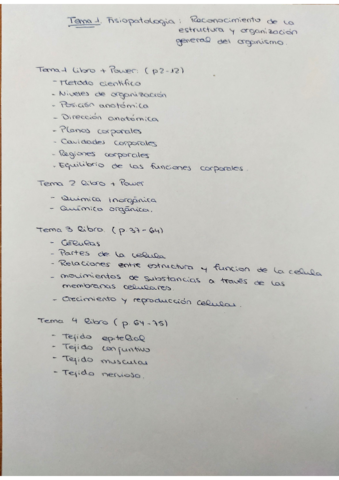 Tema 1. Fisiopatologia: Reconocimiento de la
estructura y organización
general del organismo
Tema 1 libro + Power: (p2-12)
- Metodo científico
- Niveles de organización
- Posición anatómica
- Dirección anatómica
- Planos corporales
- Cavidades corporales
- Regiones corporales
- Equilibrio de las funciones corporales.
Tema 2 libro + Power
- Química inorgánica
- Química orgánica.
Tema 3 libro. (p 37-64)
- Células
- Partes de la célula
- Relaciones entre estructura y funcion de la celula
- movimientos de substancias a través de las
membranas celulares
- Crecimiento y reproducción celular.
Tema 4 libro (p 64-75)
- Tejido epitelial
- Tejido conjuntivo
- Tejido muscular
- Tejido nervioso.